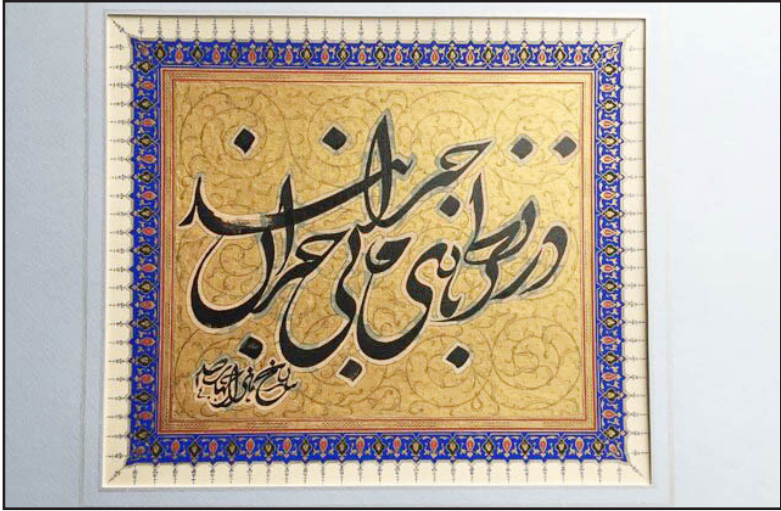 در نظربازی ما بی خبران حیرانند